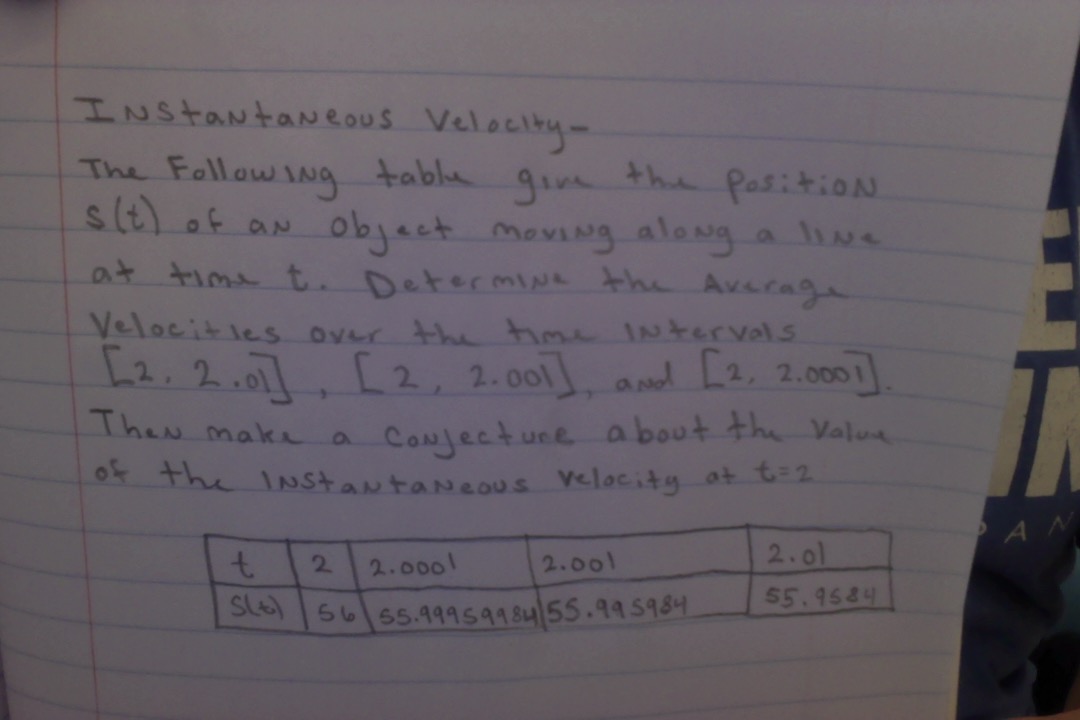 Instantaneous Velocity-
The Following table give the position
s(t) of an object moving along a line
at time t. Determine the Average
Velocities over the time intervals
[2, 2.01], [2, 2.001], and [2, 2.0001].
Then make a conjecture about the value
of the instantaneous velocity at t=2
t 2 2.0001 2.001 2.01
S(t) 56 55.99959984 55.995984 55.9584